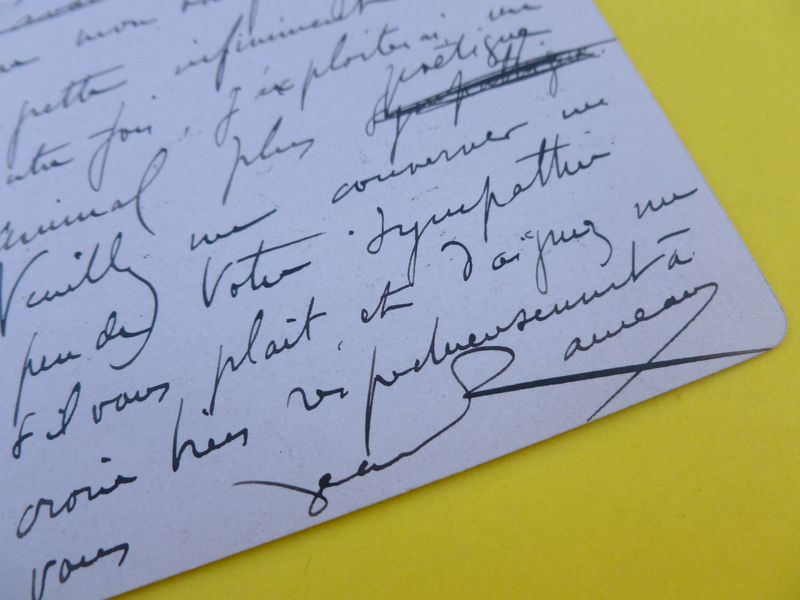 mon
infiniment
fois, j'exploiterai un
animal plus poétique
Veuillez me conserver un
peu de Votre Sympathie
s'il vous plait, et daignez me
croire bien respectueusement à
vous
Jean Rameau